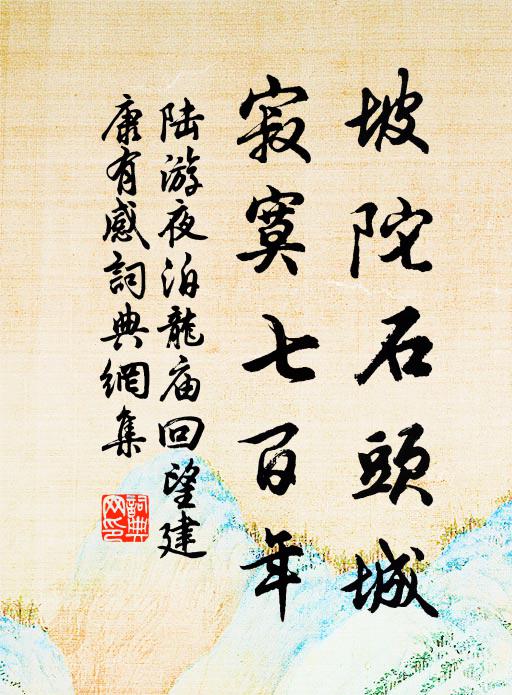 坡陀石頭城
寂寞七百年
陆游夜泊龍庙回望建
康有感詞典網集
詞典
网印